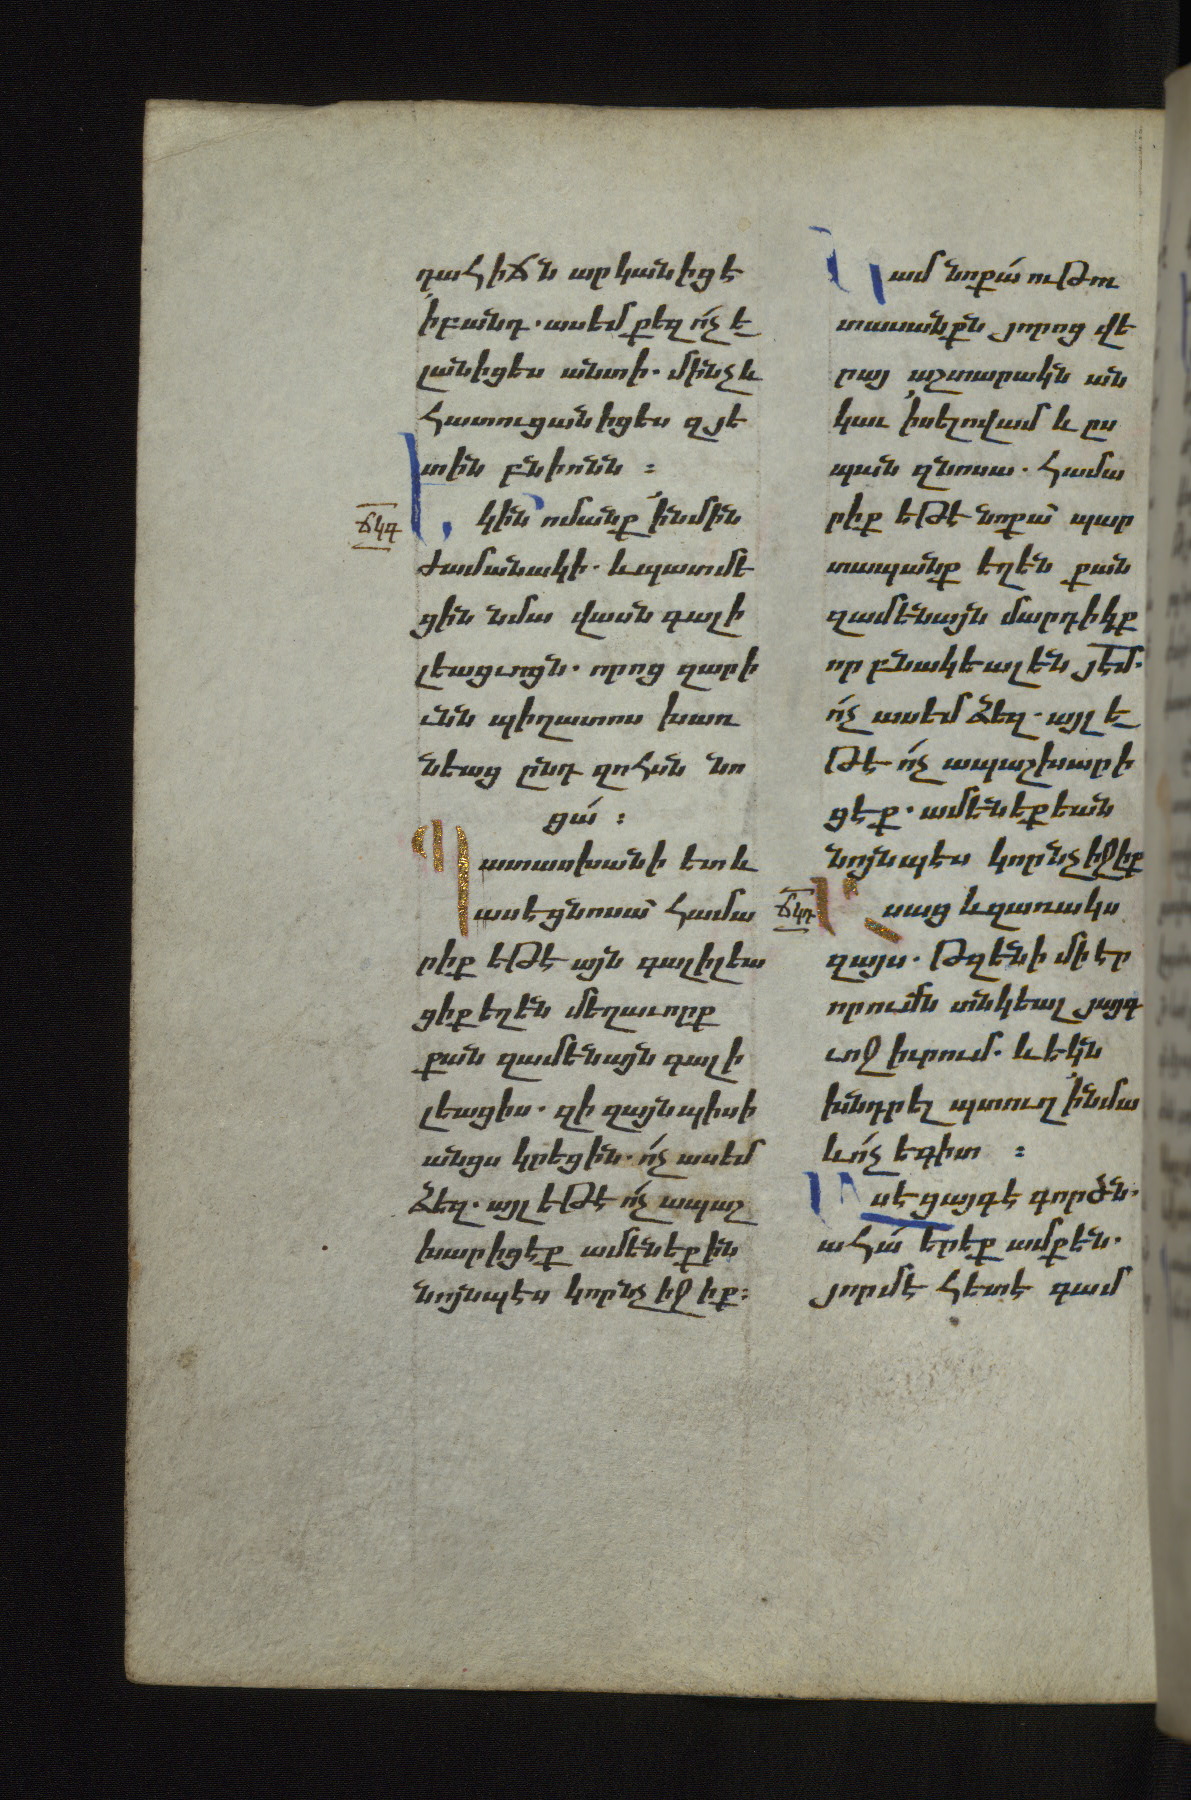 դահիճն արկանիցէ
ի բանդ. ասեմ քեզ ո՛չ ե
լանիցես անտի. մինչև
հատուցանիցես զյե
տին բնիոնն :
ճկգ
կին ոմանք ՛ինմին
ժամանակի. և պատմե
ցին նմա վասն գալի
լեացւոցն. որոց զարի
ւնն պիղատոս խառ
նեաց ընդ զոհսն նո
ցա՛ :
Պատասխանի ետ և
ասէ ցնոսա՛ համա
րիք եթէ այն գալիլեա
ցիք եղեն մեղաւորք
քան զամենայն գալի
լեացիս. զի զայնպիսի
անցս կրեցին. ո՛չ ասեմ
ձեզ. այլ եթէ ո՛չ ապաշ
խարիցէք ամենեքին
նոյնպէս կորնչիջիք :
Կամ նոքա՛ ութու
տասանքն յորոց վե
րայ աշտարակն ան
կաւ ՛ի սելովամ և ըս
պան զնոսա. համա
րիք եթէ նոքա՛ պար
տապանք եղեն քան
զամենայն մարդիկք
որ բնակեալ են յեմ.
ո՛չ ասեմ ձեզ. այլ ե
թէ ո՛չ ապաշխարի
ցէք. ամենեքեան
նոյնպէս կորնչիջիք
ճկդ
Ասաց և զառակս
զայս. Թզենի մի էր
ուրումն տնկեալ յայգ
ւոջ իւրում. և եկն
խնդրել պտուղ ՛ինմա
և ո՛չ եգիտ :
Ասէ ցայգէգործն.
ահա՛ երեք ամք են.
յորմէ հետէ գամ